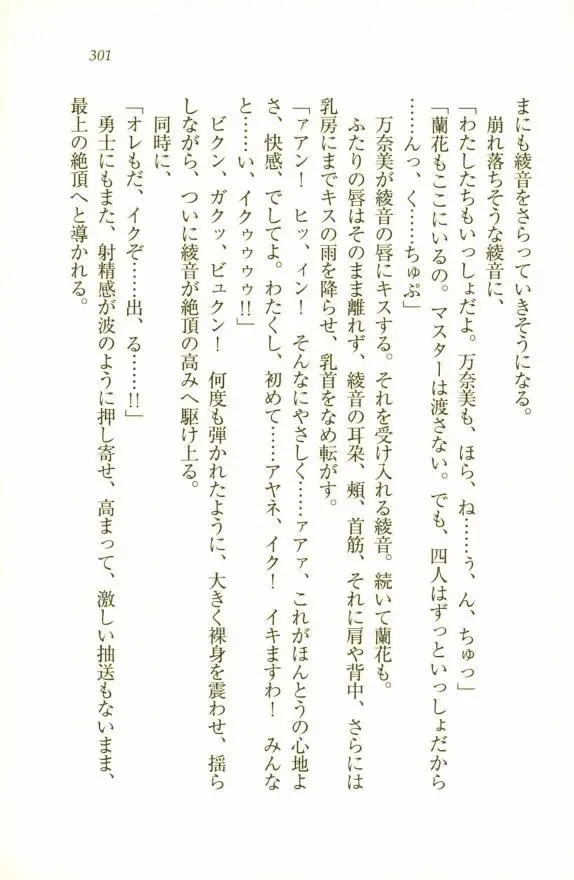 301
まにも綾音をさらっていきそうになる。
崩れ落ちそうな綾音に、
「わたしたちもいっしょだよ。万奈美も、ほら、ね……ぅ、ん、ちゅっ」
「蘭花もここにいるの。マスターは渡さない。でも、四人はずっといっしょだから
……んっ、く……ちゅぷ」
万奈美が綾音の唇にキスする。それを受け入れる綾音。続いて蘭花も。
ふたりの唇はそのまま離れず、綾音の耳朶、頰、首筋、それに肩や背中、さらには
乳房にまでキスの雨を降らせ、乳首をなめ転がす。
「ァアン！　ヒッ、ィン！　そんなにやさしく……ァアァ、これがほんとうの心地よ
さ、快感、でしてよ。わたくし、初めて……アヤネ、イク！　イキますわ！　みんな
と……い、イクゥゥゥゥ!!」
ビクン、ガクッ、ビュクン！　何度も弾かれたように、大きく裸身を震わせ、揺ら
しながら、ついに綾音が絶頂の高みへ駆け上る。
同時に、
「オレもだ、イクぞ……出、る……!!」
勇士にもまた、射精感が波のように押し寄せ、高まって、激しい抽送もないまま、
最上の絶頂へと導かれる。